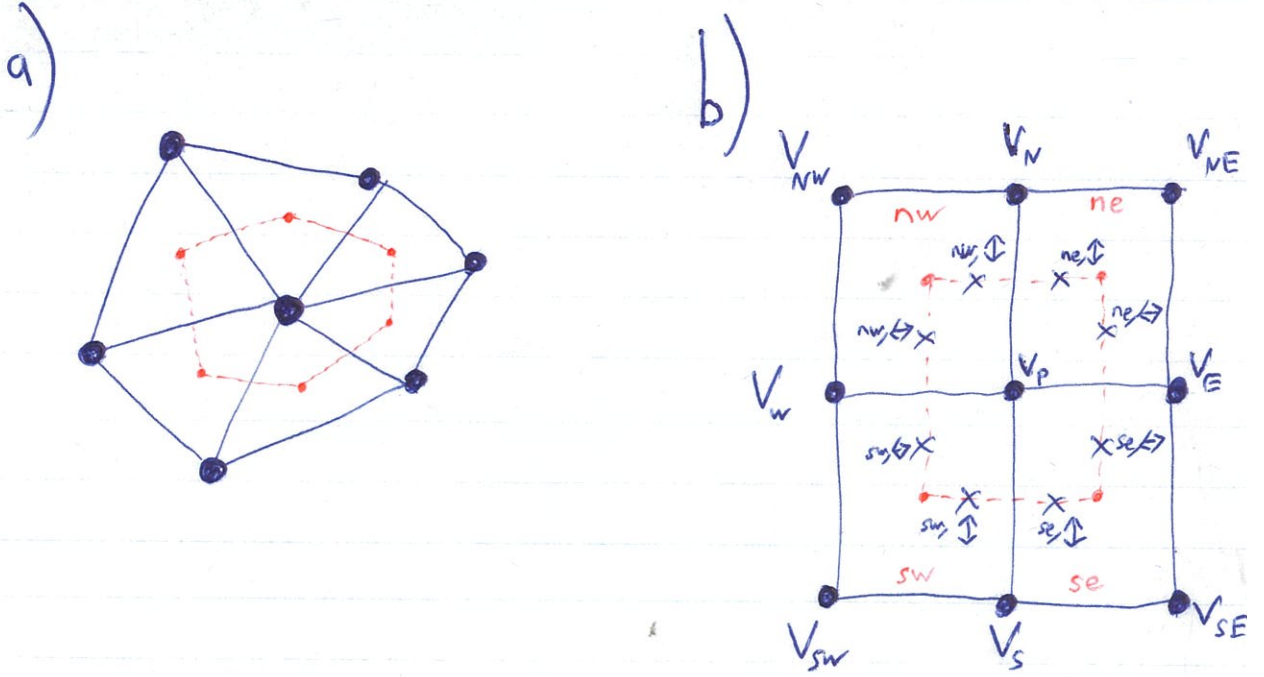 a)
b)
V_NW V_N V_NE
nw ne
nw,↕ ne,↕
nw,↔ ne,↔
V_W V_P V_E
sw,↔ se,↔
sw,↕ se,↕
sw se
V_SW V_S V_SE